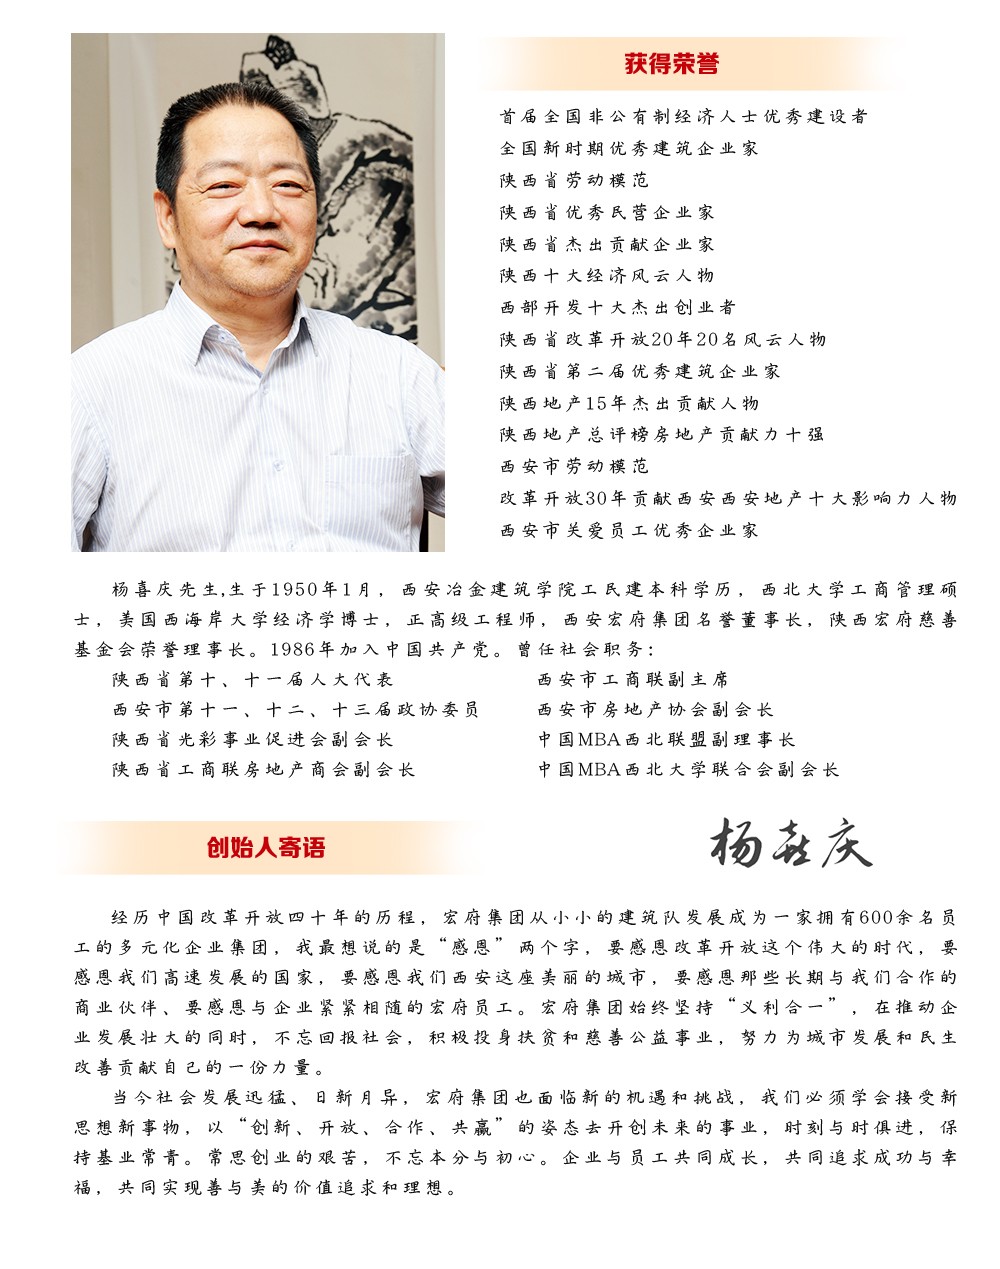 获得荣誉
首届全国非公有制经济人士优秀建设者
全国新时期优秀建筑企业家
陕西省劳动模范
陕西省优秀民营企业家
陕西省杰出贡献企业家
陕西十大经济风云人物
西部开发十大杰出创业者
陕西省改革开放20年20名风云人物
陕西省第二届优秀建筑企业家
陕西地产15年杰出贡献人物
陕西地产总评榜房地产贡献力十强
西安市劳动模范
改革开放30年贡献西安西安地产十大影响力人物
西安市关爱员工优秀企业家
杨喜庆先生,生于1950年1月，西安冶金建筑学院工民建本科学历，西北大学工商管理硕
士，美国西海岸大学经济学博士，正高级工程师，西安宏府集团名誉董事长，陕西宏府慈善
基金会荣誉理事长。1986年加入中国共产党。曾任社会职务：
陕西省第十、十一届人大代表 西安市工商联副主席
西安市第十一、十二、十三届政协委员 西安市房地产协会副会长
陕西省光彩事业促进会副会长 中国MBA西北联盟副理事长
陕西省工商联房地产商会副会长 中国MBA西北大学联合会副会长
创始人寄语
杨喜庆
经历中国改革开放四十年的历程，宏府集团从小小的建筑队发展成为一家拥有600余名员
工的多元化企业集团，我最想说的是“感恩”两个字，要感恩改革开放这个伟大的时代，要
感恩我们高速发展的国家，要感恩我们西安这座美丽的城市，要感恩那些长期与我们合作的
商业伙伴、要感恩与企业紧紧相随的宏府员工。宏府集团始终坚持“义利合一”，在推动企
业发展壮大的同时，不忘回报社会，积极投身扶贫和慈善公益事业，努力为城市发展和民生
改善贡献自己的一份力量。
当今社会发展迅猛、日新月异，宏府集团也面临新的机遇和挑战，我们必须学会接受新
思想新事物，以“创新、开放、合作、共赢”的姿态去开创未来的事业，时刻与时俱进，保
持基业常青。常思创业的艰苦，不忘本分与初心。企业与员工共同成长，共同追求成功与幸
福，共同实现善与美的价值追求和理想。